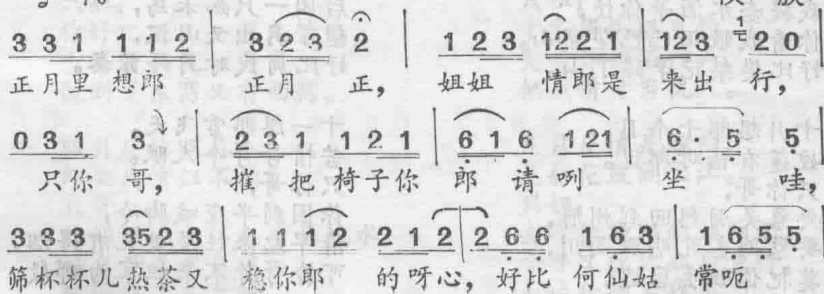 3 3 1 1 1 2 | 3 2 3 2 | 1 2 3 12 2 1 | 12 3 1 2 0
正月里想郎 正月 正， 姐姐 情郎是 来出 行，
0 3 1 3 | 2 3 1 1 2 1 | 6 1 6 1 21 | 6 · 5 5
只你 哥， 摧 把 椅子你 郎 请 咧 坐 哇，
3 3 3 35 2 3 | 1 1 1 2 2 1 2 | 2 6 6 1 6 3 | 1 6 5 5
筛杯杯儿热茶又 稳你郎 的呀心， 好比 何仙姑 常呃